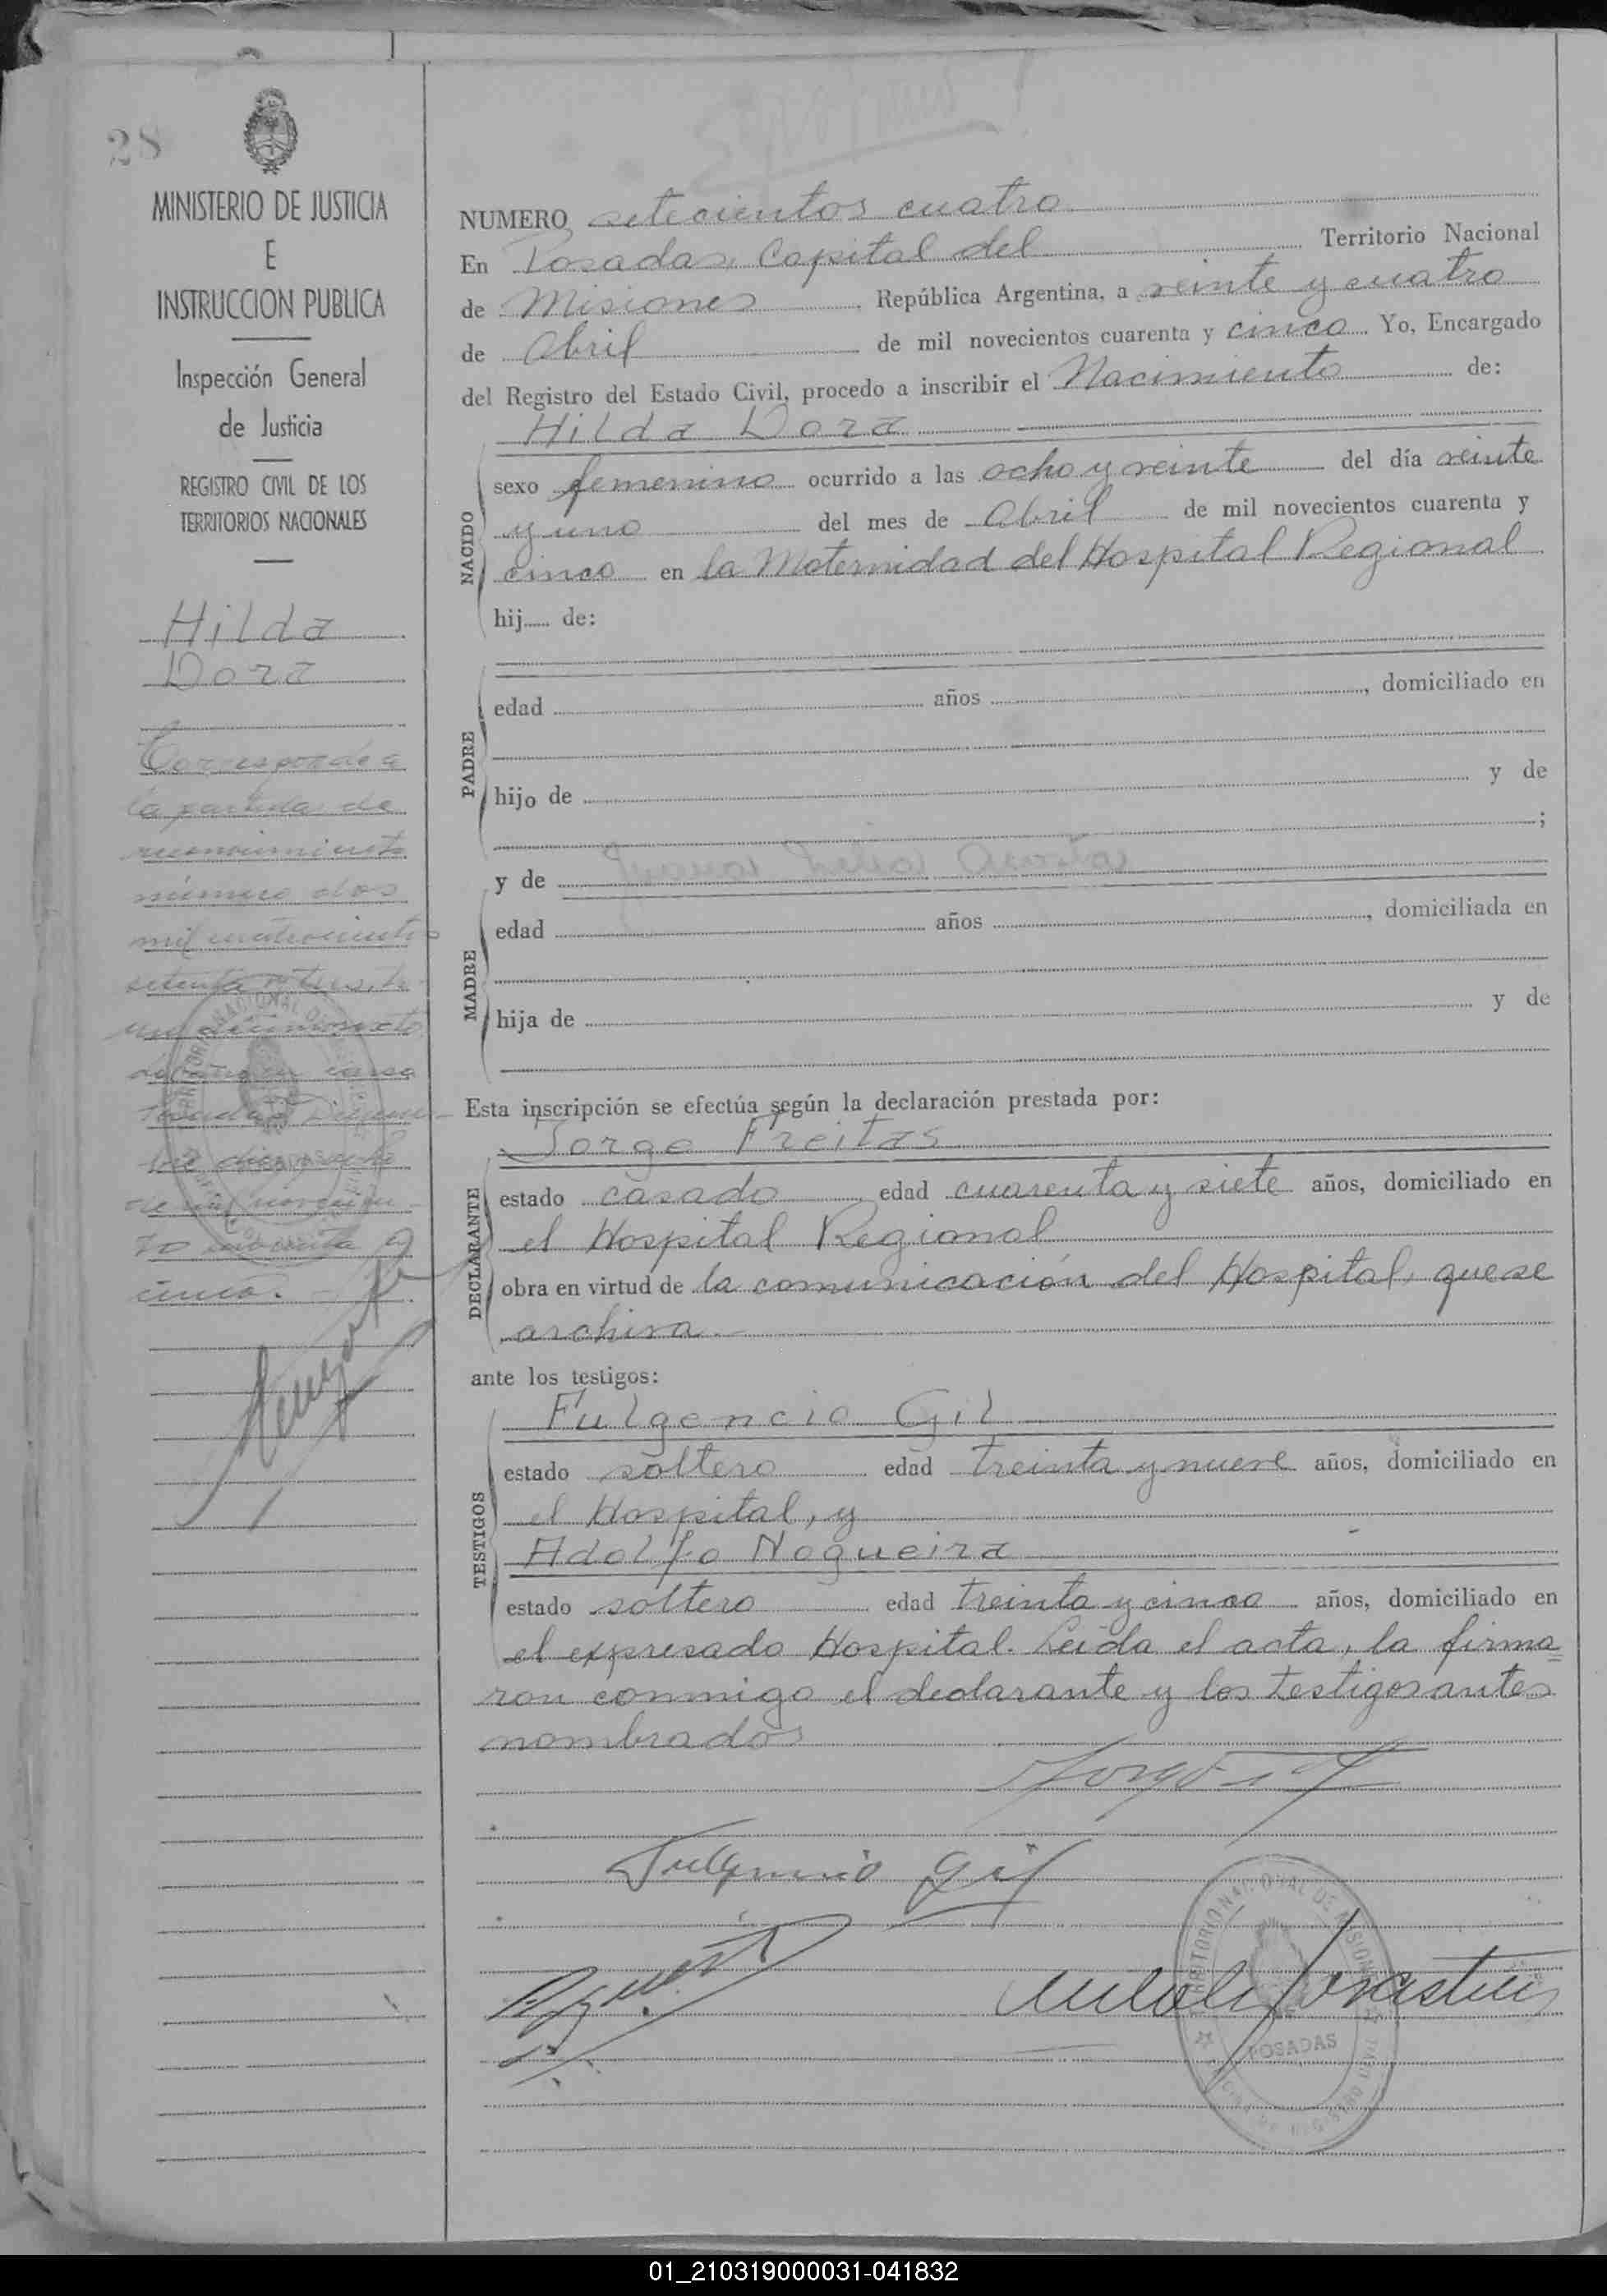 28
MINISTERIO DE JUSTICIA
E
INSTRUCCION PUBLICA
Inspección General
de Justicia
REGISTRO CIVIL DE LOS
TERRITORIOS NACIONALES
Hilda
Dora
Corresponde a
la partida de
reconocimiento
número dos
mil cuatrocientos
setenta y tres, to-
mo décimosexto
Posadas Diciem-
bre
de mil novecien-
to cuarenta y
cinco.
NUMERO setecientos cuatro
En Posadas, Capital del Territorio Nacional
de Misiones, República Argentina, a veinte y cuatro
de Abril de mil novecientos cuarenta y cinco Yo, Encargado
del Registro del Estado Civil, procedo a inscribir el Nacimiento de:
Hilda Dora
NACIDO
sexo femenino ocurrido a las ocho y veinte del día veinte
y uno del mes de Abril de mil novecientos cuarenta y
cinco en la Maternidad del Hospital Regional
hij de:
PADRE
edad años, domiciliado en
hijo de y de
;
y de Juana
MADRE
edad años, domiciliada en
hija de y de
Esta inscripción se efectúa según la declaración prestada por:
Jorge Freitas
DECLARANTE
estado casado, edad cuarenta y siete años, domiciliado en
el Hospital Regional
obra en virtud de la comunicación del Hospital, que se
archiva
ante los testigos:
Fulgencio Gil
TESTIGOS
estado soltero edad treinta y nueve años, domiciliado en
el Hospital, y
Adolfo Nogueira
estado soltero edad treinta y cinco años, domiciliado en
el expresado Hospital. Leída el acta, la firma
ron conmigo el declarante y los testigos antes
nombrados
Fulgencio Gil
TERRITORIO NACIONAL DE MISIONES
POSADAS
01_210319000031-041832